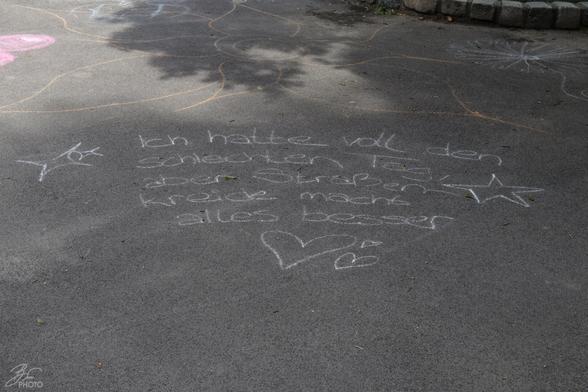 Ich hatte voll den
schlechten Tag,
aber Straßen
kreide macht
alles besser
PHOTO